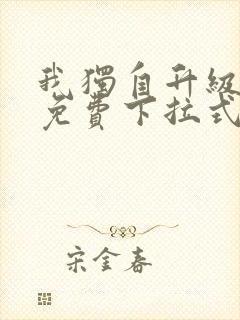 我獨自升級
免費下拉式
宋金春